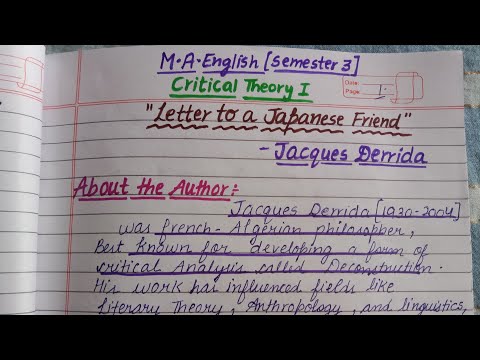 M.A. English [Semester 3]
Critical Theory I
Date
Page 1.
"Letter to a Japanese Friend"
- Jacques Derrida
About the Author:-
Jacques Derrida [1930-2004]
was french- Algerian philosopher,
Best known for developing a form of
critical Analysis called Deconstruction.
His work has influenced fields like
Literary Theory, Anthropology, and linguistics,